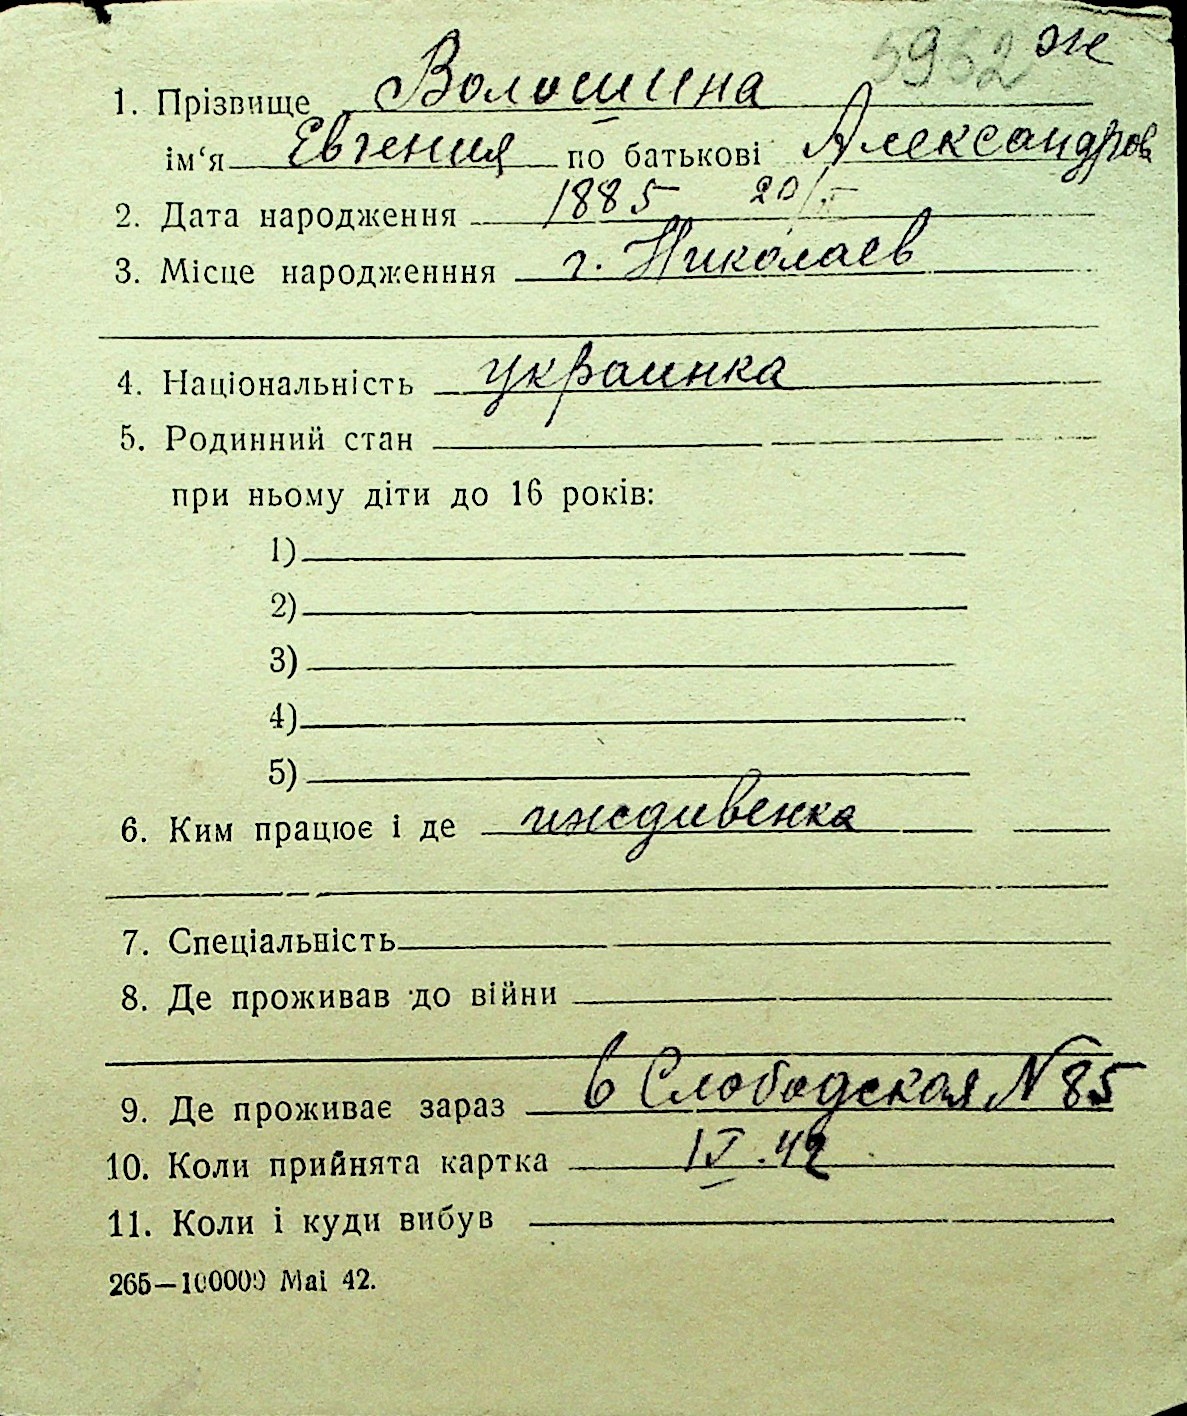 5952 ж
1. Прізвище Волошина
ім'я Евгения по батькові Александров
2. Дата народження 1885 20/
3. Місце народженння г. Николаев
4. Національність украинка
5. Родинний стан
при ньому діти до 16 років:
1)
2)
3)
4)
5)
6. Ким працює і де иждивенка
7. Спеціальність
8. Де проживав до війни
9. Де проживає зараз 6 Слободская N 85
10. Коли прийнята картка .42
11. Коли і куди вибув
265—100000 Mai 42.